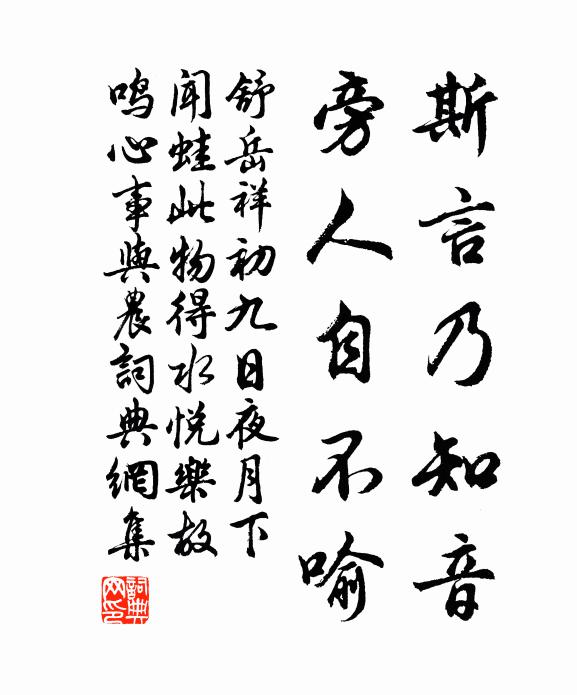 斯言乃知音
旁人自不喻
舒岳祥初九日夜月下
闻蛙此物得水悦樂故
鸣心事與農詞典網集
詞典
网印